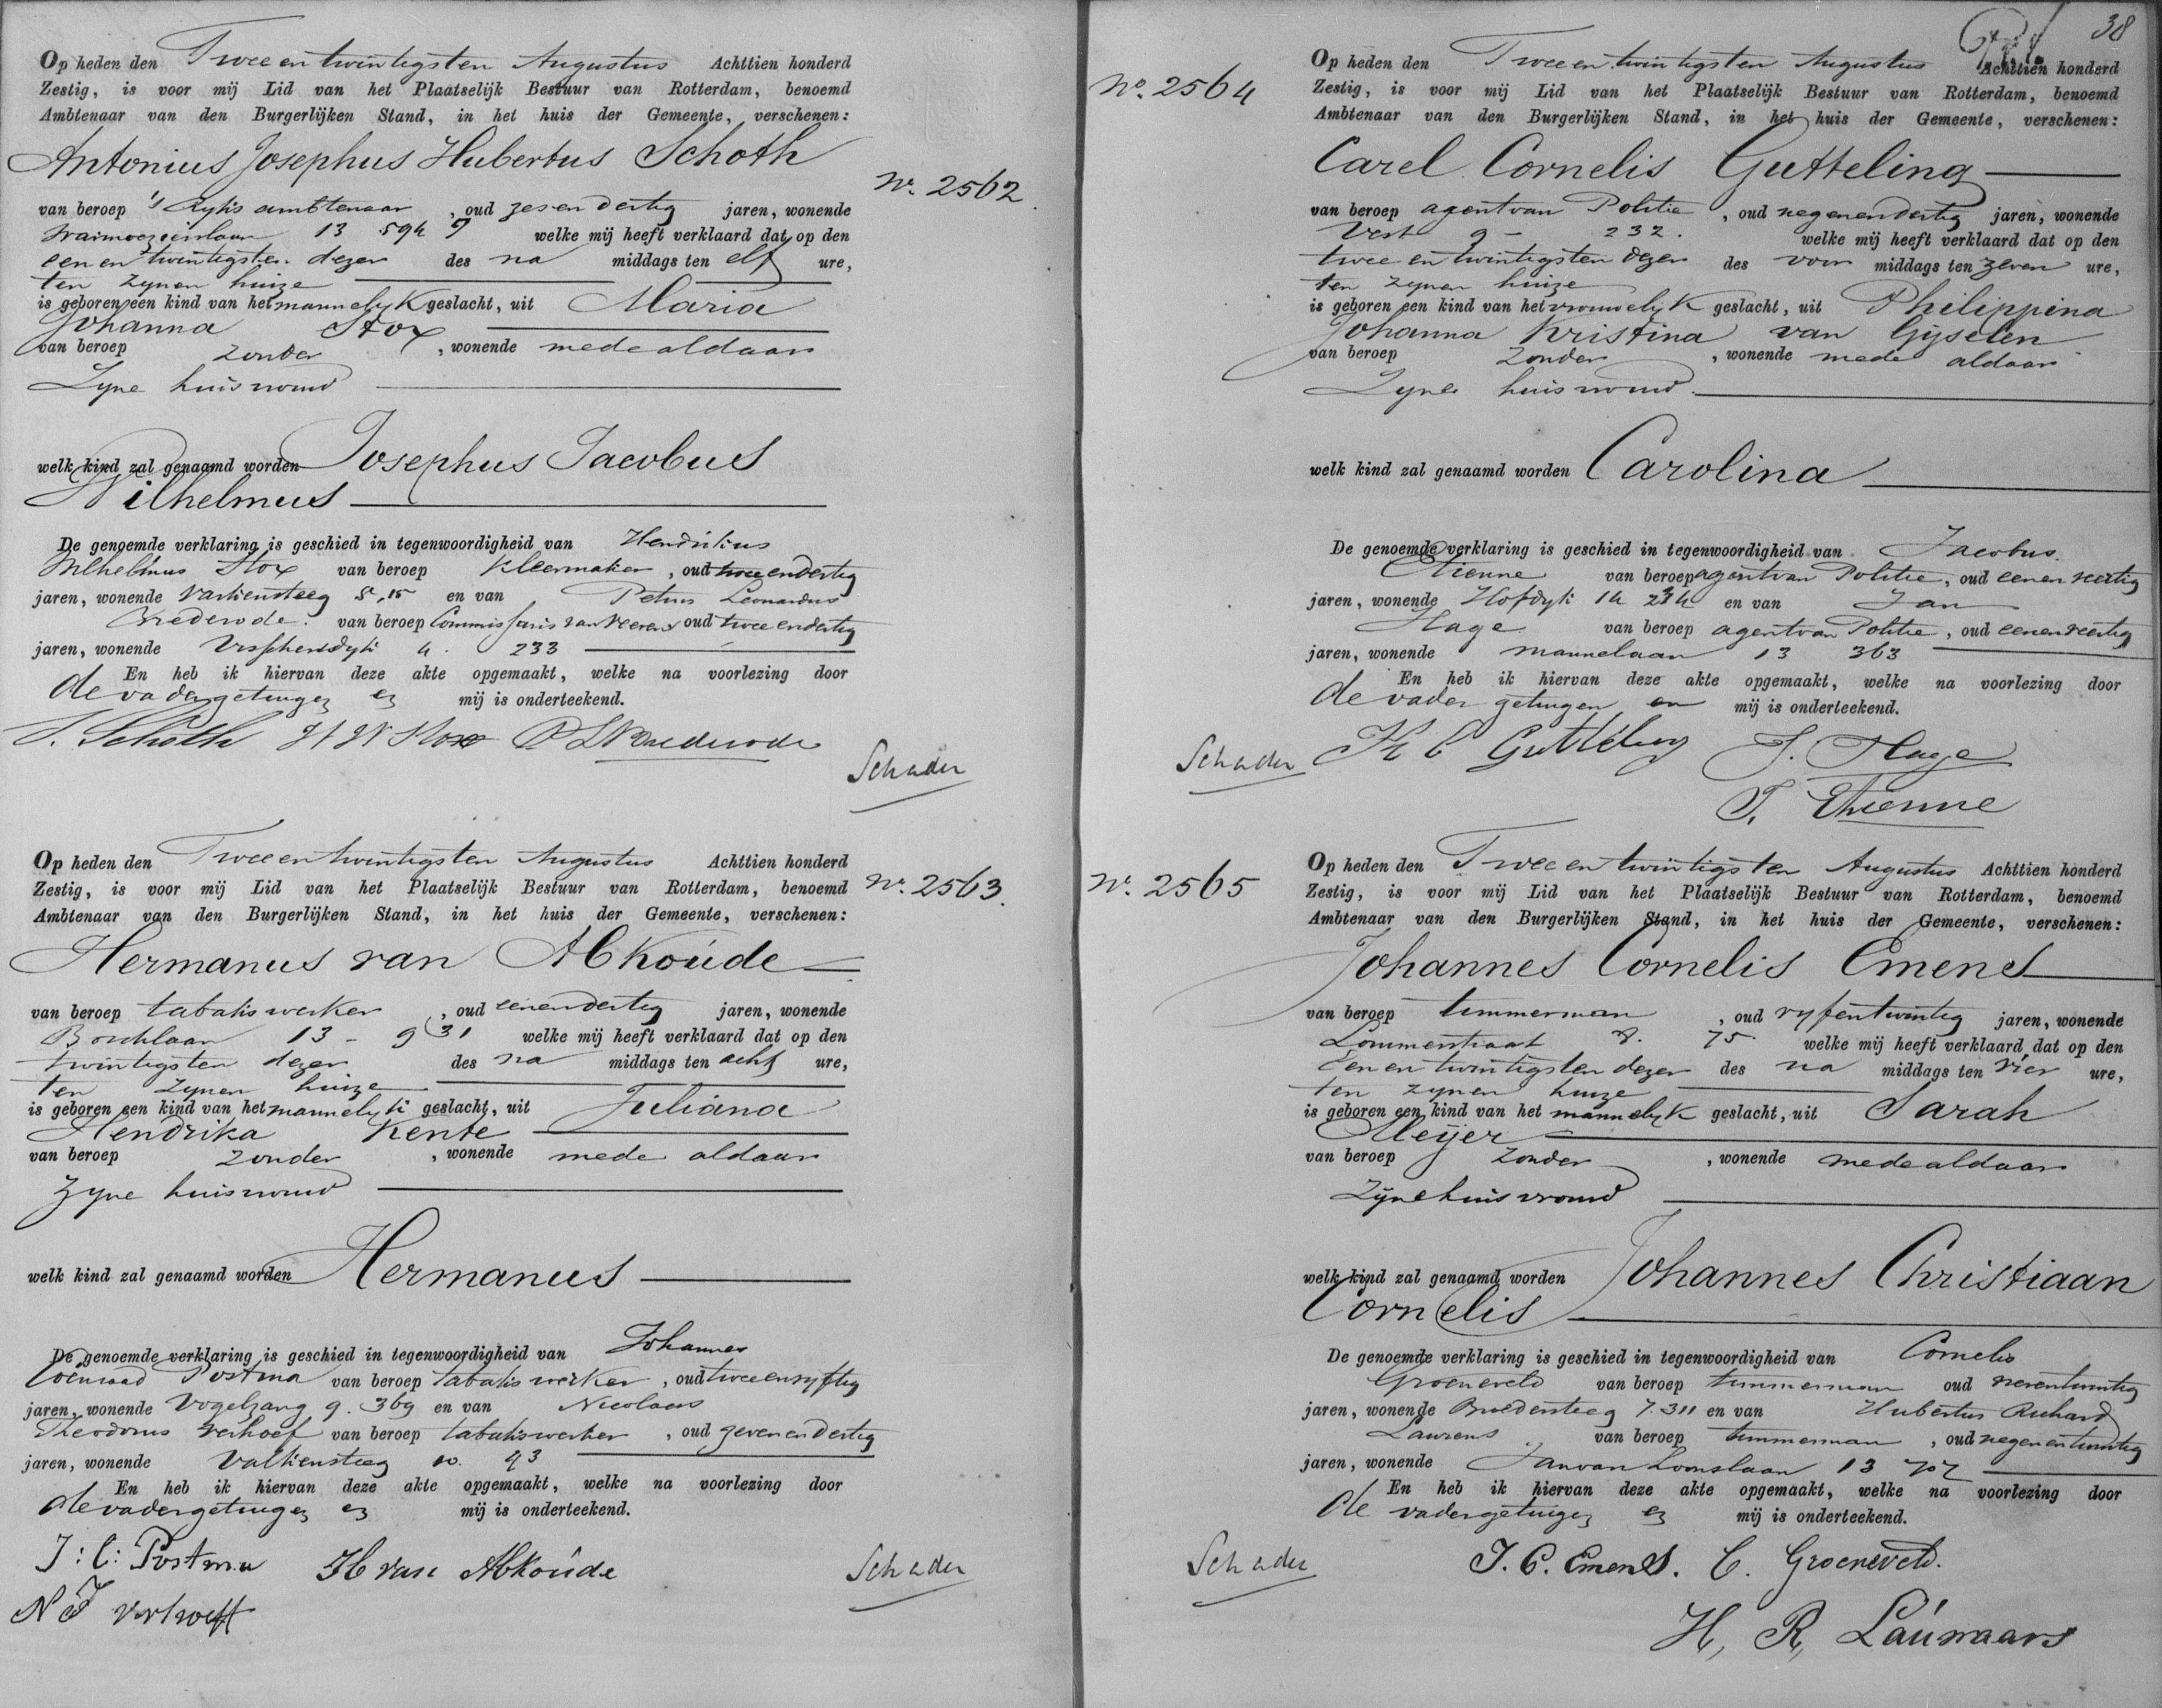 Op heden den Twee en twintigsten Augustus Achttien honderd
Zestig, is voor mij Lid van het Plaatselijk Bestuur van Rotterdam, benoemd
Ambtenaar van den Burgerlijken Stand, in het huis der Gemeente, verschenen:
Antonius Josephus Hubertus Schoth
No. 2562
van beroep 's Ryks ambtenaar, oud zes en dertig jaren, wonende
13 594 welke mij heeft verklaard dat op den
een en twintigsten dezer des na middags ten elf ure,
ten zynen huize
is geboren een kind van het mannelyk geslacht, uit Maria
Johanna Stox
van beroep zonder, wonende mede aldaar
Zyne huisvrouw
welk kind zal genaamd worden Josephus Jacobus
Wilhelmus
De genoemde verklaring is geschied in tegenwoordigheid van Hendrikus
Wilhelmus Stox van beroep Kleermaker, oud twee en dertig
jaren, wonende Varkensteeg 5,15 en van Petrus Leonardus
Brederode van beroep Commissaris van Veeren, oud twee en dertig
jaren, wonende Visschersdyk 4. 233
En heb ik hiervan deze akte opgemaakt, welke na voorlezing door
de vader getuigen en mij is onderteekend.
Schoth H W Stox P L Brederode
Schader
Op heden den Twee en twintigsten Augustus Achttien honderd
Zestig, is voor mij Lid van het Plaatselijk Bestuur van Rotterdam, benoemd
No. 2563.
Ambtenaar van den Burgerlijken Stand, in het huis der Gemeente, verschenen:
Hermanus van Abkoúde
van beroep tabakswerker, oud een en dertig jaren, wonende
13 - 931 welke mij heeft verklaard dat op den
twintigsten dezer des na middags ten acht ure,
ten zynen huize
is geboren een kind van het mannelyk geslacht, uit Juliana
Hendrika Kente
van beroep zonder, wonende mede aldaar
Zyne huisvrouw
welk kind zal genaamd worden Hermanus
De genoemde verklaring is geschied in tegenwoordigheid van Johannes
Coenraad Postma van beroep tabakswerker, oud twee en vyftig
jaren, wonende Vogelzang 9. 369 en van Nicolaas
Theodorus Verhoef van beroep tabakswerker, oud zeven en dertig
jaren, wonende Valkensteeg 10. 93
En heb ik hiervan deze akte opgemaakt, welke na voorlezing door
de vader getuigen en mij is onderteekend.
J: C: Postma H van Abkoúde
Schader
N T Verhoeff
38
Op heden den Twee en twintigsten Augustus Achttien honderd
No. 2564
Zestig, is voor mij Lid van het Plaatselijk Bestuur van Rotterdam, benoemd
Ambtenaar van den Burgerlijken Stand, in het huis der Gemeente, verschenen:
Carel Cornelis Gutteling
van beroep agent van Politie, oud negen en dertig jaren, wonende
Vest 9 - 232. welke mij heeft verklaard dat op den
twee en twintigsten dezer des voor middags ten zeven ure,
ten zynen huize
is geboren een kind van het vrouwelyk geslacht, uit Philippina
Johanna Kristina van Gijselen
van beroep zonder, wonende mede aldaar
Zyne huisvrouw
welk kind zal genaamd worden Carolina
De genoemde verklaring is geschied in tegenwoordigheid van Jacobus
Etienne van beroep agent van Politie, oud een en veertig
jaren, wonende Hofdyk 14 234 en van Jan
Hage van beroep agent van Politie, oud een en veertig
jaren, wonende 13 363
En heb ik hiervan deze akte opgemaakt, welke na voorlezing door
de vader getuigen en mij is onderteekend.
Schader K C Gutteling J. Hage
J. Etienne
Op heden den Twee en twintigsten Augustus Achttien honderd
No. 2565
Zestig, is voor mij Lid van het Plaatselijk Bestuur van Rotterdam, benoemd
Ambtenaar van den Burgerlijken Stand, in het huis der Gemeente, verschenen:
Johannes Cornelis Emens
van beroep timmerman, oud vyf en twintig jaren, wonende
Lommerstraat 8. 75 welke mij heeft verklaard dat op den
een en twintigsten dezer des na middags ten vier ure,
ten zynen huize
is geboren een kind van het mannelyk geslacht, uit Sarah
Meijer
van beroep zonder, wonende mede aldaar
Zijne huisvrouw
welk kind zal genaamd worden Johannes Christiaan
Cornelis
De genoemde verklaring is geschied in tegenwoordigheid van Cornelis
Groeneveld van beroep timmerman oud zeven en twintig
jaren, wonende Broedersteeg 7. 311 en van Hubertus Richard
van beroep timmerman, oud negen en twintig
jaren, wonende Jan van Loonslaan 13 707
En heb ik hiervan deze akte opgemaakt, welke na voorlezing door
de vader getuigen en mij is onderteekend.
Schader J. C. Emens. C. Groeneveld.
H, R, Laúmaars